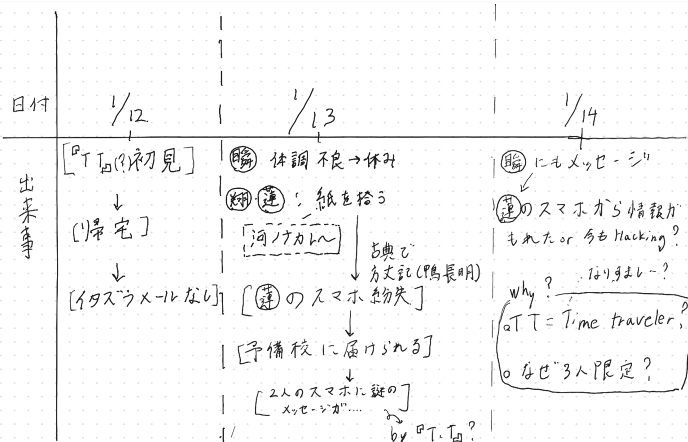 日付
1/12
1/13
1/14
出来事
[『TT』(?)初見]
↓
[帰宅]
↓
[イタズラメールなし]
瞬 体調不良→休み
翔・蓮: 紙を拾う
河ノナガレ〜
古典で
方丈記(鴨長明)
[蓮のスマホ紛失]
↓
[予備校に届けられる]
↓
[2人のスマホに謎の
メッセージが....]
by『T.T』?
瞬にもメッセージ
蓮のスマホから情報が
もれたor 今もHacking?
なりすまし-?
why?
。TT=Time traveler?
。なぜ3人限定?